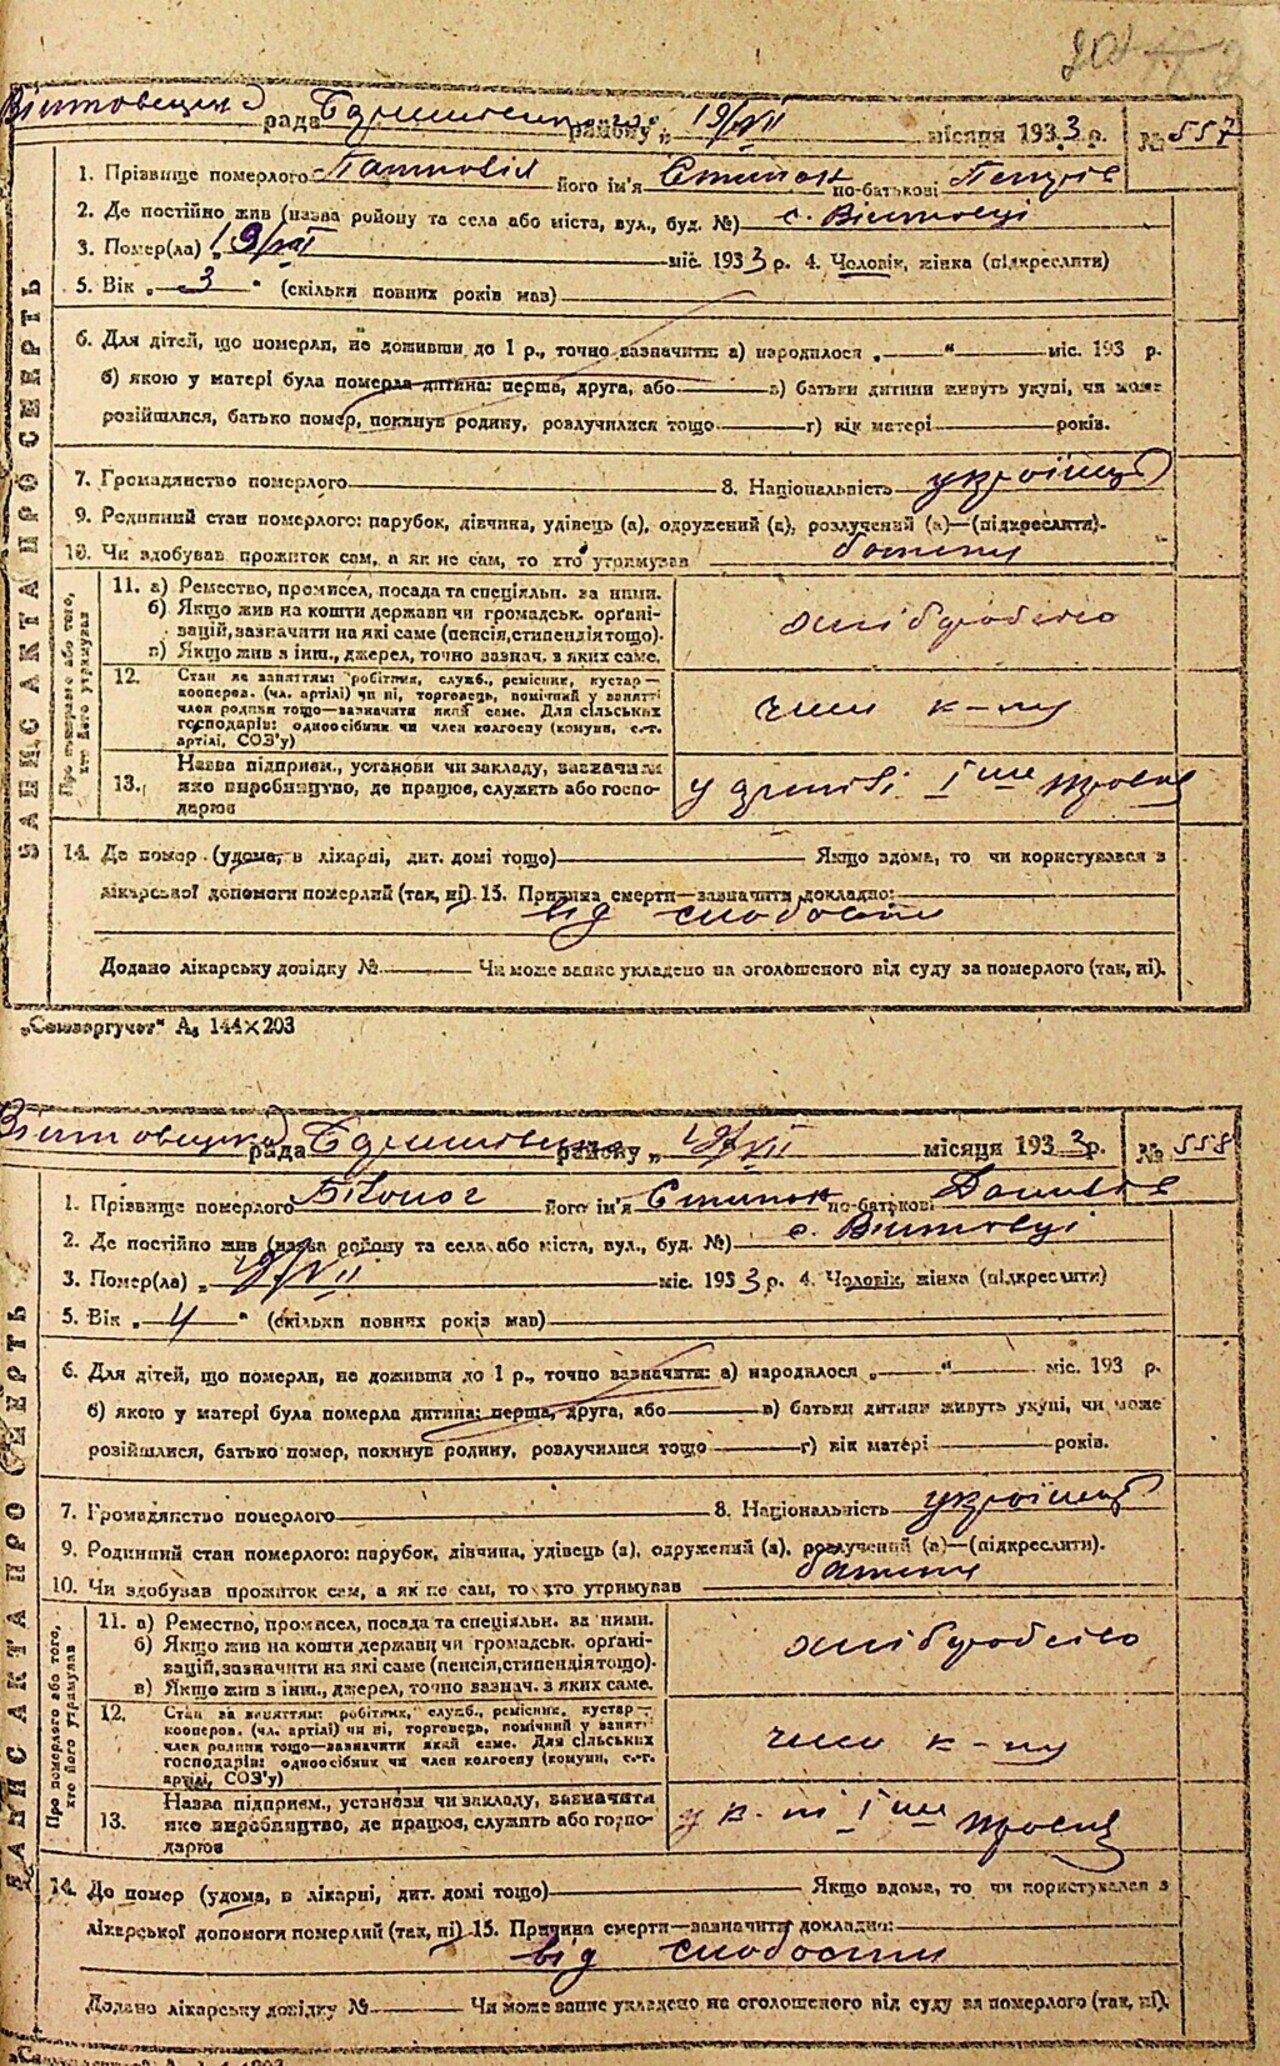 Війтовецька рада району „ 19/VII місяця 1933 р. № 557
ЗАПИС АКТА ПРО СМЕРТЬ
1. Прізвище померлого його ім'я Степан по-батькові Петрів
2. Де постійно жив (назва району та села або міста, вул., буд. №) с. Війтовці
3. Помер(ла) „ 19/VII міс. 1933 р. 4. Чоловік, жінка (підкреслити)
5. Вік „ 3 “ (скільки повних років мав)
6. Для дітей, що померли, не доживши до 1 р., точно зазначити: а) народилося „ “ міс. 193 р.
б) якою у матері була померла дитина: перша, друга, або в) батьки дитини живуть укупі, чи може
розійшлися, батько помер, покинув родину, розлучилися тощо г) вік матері років.
7. Громадянство померлого 8. Національність українець
9. Родинний стан померлого: парубок, дівчина, удівець (а), одружений (а), розлучений (а)—(підкреслити).
10. Чи здобував прожиток сам, а як не сам, то хто утримував батьки
Про померлого або того, хто його утримував
11. а) Ремество, промисел, посада та спеціяльн. за ними.
б) Якщо жив на кошти держави чи громадськ. органі-
зацій, зазначити на які саме (пенсія, стипендія тощо).
в) Якщо жив з інш., джерел, точно зазнач. з яких саме.
хліборобство
12. Стан за заняттям: робітник, служб., ремісник, кустар—
кооперов. (чл. артілі) чи ні, торговець, помічний у занятті
член родини тощо—зазначити який саме. Для сільських
господарів: одноосібник чи член колгоспу (комуни, с.-г.
артілі, СОЗ'у)
член к-пу
13. Назва підприєм., установи чи закладу, зазначити
яке виробництво, де працює, служить або госпо-
дарює
у артілі І ше травня
14. Де помер (удома, в лікарні, дит. домі тощо) Якщо вдома, то чи користувався з
лікарської допомоги померлий (так, ні) 15. Причина смерти—зазначити докладно:
від слабости
Додано лікарську довідку № Чи може запис укладено на оголошеного від суду за померлого (так, ні).
„Союзоргучет“ А₅ 144×203
Війтовецька рада району „ 19/VII місяця 1933 р. № 558
ЗАПИС АКТА ПРО СМЕРТЬ
1. Прізвище померлого Білоног його ім'я Степан по-батькові Данилів
2. Де постійно жив (назва району та села або міста, вул., буд. №) с. Війтовці
3. Помер(ла) „ 19/VII міс. 1933 р. 4. Чоловік, жінка (підкреслити)
5. Вік „ 4 “ (скільки повних років мав)
6. Для дітей, що померли, не доживши до 1 р., точно зазначити: а) народилося „ “ міс. 193 р.
б) якою у матері була померла дитина: перша, друга, або в) батьки дитини живуть укупі, чи може
розійшлися, батько помер, покинув родину, розлучилися тощо г) вік матері років.
7. Громадянство померлого 8. Національність українець
9. Родинний стан померлого: парубок, дівчина, удівець (а), одружений (а), розлучений (а)—(підкреслити).
10. Чи здобував прожиток сам, а як не сам, то хто утримував батьки
Про померлого або того, хто його утримував
11. а) Ремество, промисел, посада та спеціяльн. за ними.
б) Якщо жив на кошти держави чи громадськ. органі-
зацій, зазначити на які саме (пенсія, стипендія тощо).
в) Якщо жив з інш., джерел, точно зазнач. з яких саме.
хліборобство
12. Стан за заняттям: робітник, служб., ремісник, кустар—
кооперов. (чл. артілі) чи ні, торговець, помічний у занятті
член родини тощо—зазначити який саме. Для сільських
господарів: одноосібник чи член колгоспу (комуни, с.-г.
артілі, СОЗ'у)
член к-пу
13. Назва підприєм., установи чи закладу, зазначити
яке виробництво, де працює, служить або госпо-
дарює
у к-пі І ше травня
14. Де помер (удома, в лікарні, дит. домі тощо) Якщо вдома, то чи користувався з
лікарської допомоги померлий (так, ні) 15. Причина смерти—зазначити докладно:
від слабости
Додано лікарську довідку № Чи може запис укладено на оголошеного від суду за померлого (так, ні).